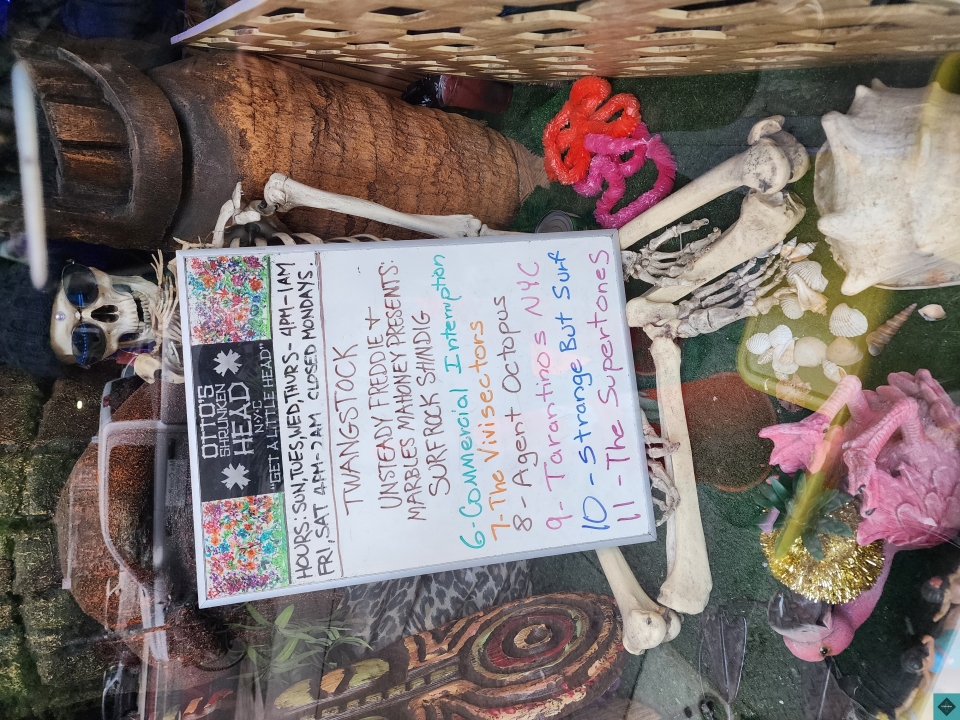 OTTO'S
SHRUNKEN
HEAD
NYC
"GET A LITTLE HEAD"
HOURS: SUN,TUES,WED,THURS - 4PM-1AM
FRI, SAT 4PM-2AM CLOSED MONDAYS.
TWANGSTOCK
UNSTEADY FREDDIE +
MARBLES MAHONEY PRESENTS:
SURFROCK SHINDIG
6-Commercial Interruption
7-The Vivisectors
8 - Agent Octopus
9 - Tarantinos NYC
10 - Strange But Surf
11 - The Supertones